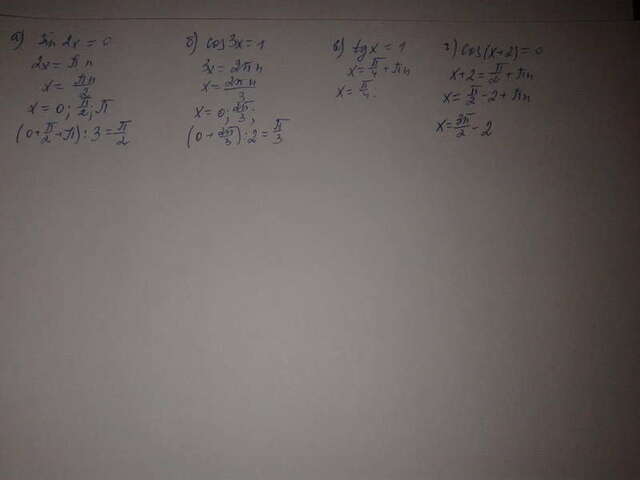 а) sin 2x = 0
2x = πn
x = πn/2
x = 0; π/2; π
(0 + π/2 + π) : 3 = π/2
б) cos 3x = 1
3x = 2πn
x = 2πn/3
x = 0; 2π/3;
(0 + 2π/3) : 2 = π/3
в) tg x = 1
x = π/4 + πn
x = π/4.
г) cos(x+2) = 0
x + 2 = π/2 + πn
x = π/2 - 2 + πn
x = 3π/2 - 2